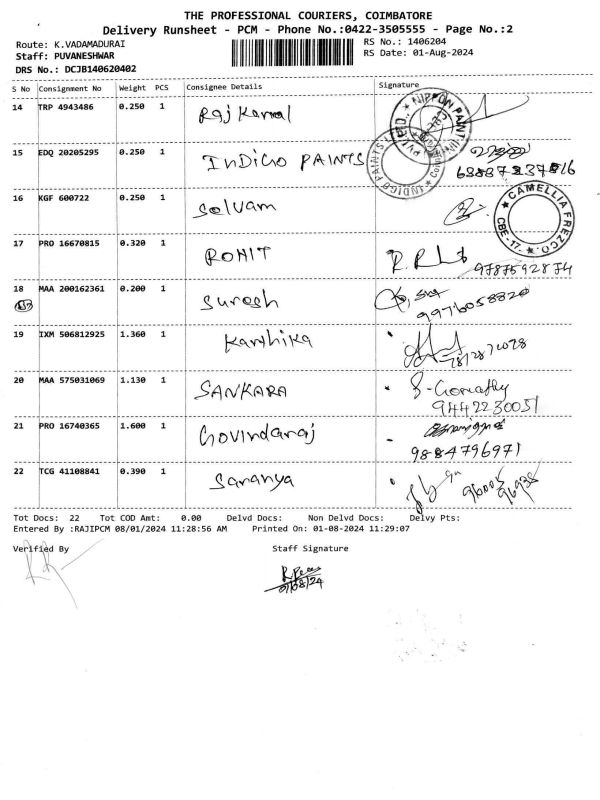 THE PROFESSIONAL COURIERS, COIMBATORE
Delivery Runsheet - PCM - Phone No.:0422-3505555 - Page No.:2
Route: K.VADAMADURAI RS No.: 1406204
Staff: PUVANESHWAR RS Date: 01-Aug-2024
DRS No.: DCJB140620402
S No Consignment No Weight PCS Consignee Details Signature
14 TRP 4943486 0.250 1 Rajkamal
NIPPON PAINT
15 EDQ 20205295 0.250 1 INDIGO PAINTS
INDIGO PAINTS PVT LTD.
16 KGF 600722 0.250 1 Selvam
CAMELLIA FREZCO CBE-17
17 PRO 16670815 0.320 1 ROHIT
9787592874
18 MAA 200162361 0.200 1 Suresh
9976058820
19 IXM 506812925 1.360 1 Karthika
20 MAA 575031069 1.130 1 SANKARA
9442230051
21 PRO 16740365 1.600 1 Govindaraj
9884796971
22 TCG 41108841 0.390 1 Saranya
96005 96938
Tot Docs: 22 Tot COD Amt: 0.00 Delvd Docs: Non Delvd Docs: Delvy Pts:
Entered By :RAJIPCM 08/01/2024 11:28:56 AM Printed On: 01-08-2024 11:29:07
Verified By Staff Signature
01/08/24